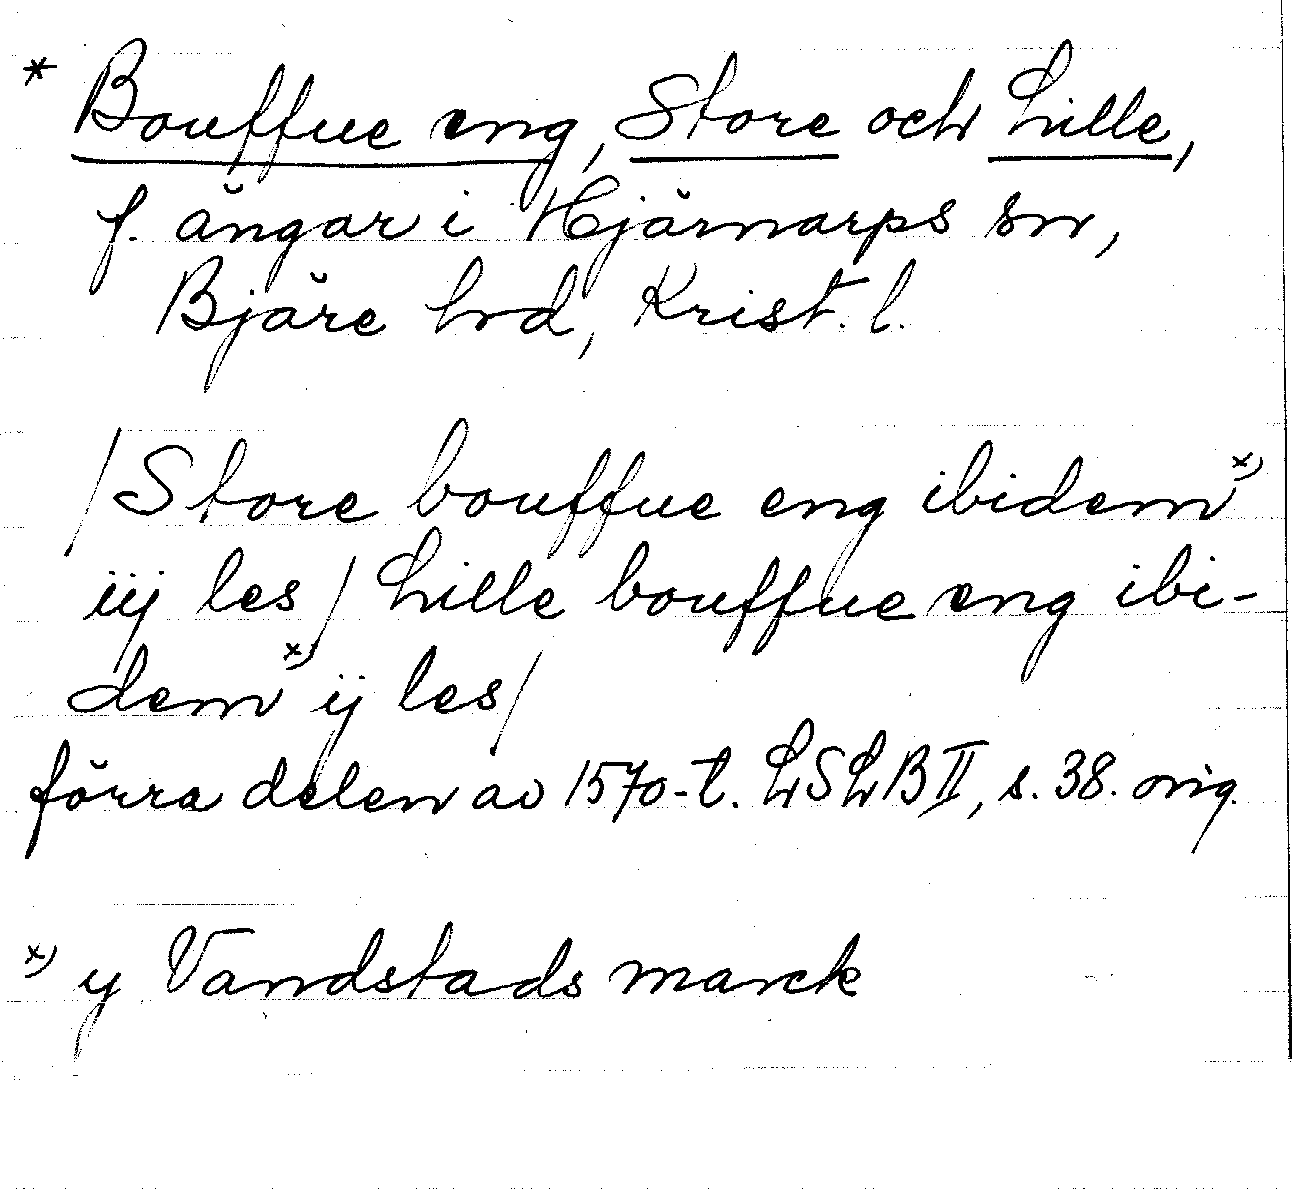 * Bouffue eng, Store och Lille,
f. ängar i Hjärnarps sn,
Bjäre hd, Krist. l.
/Store bouffue eng ibidem x)
iij les/Lille bouffue eng ibi-
dem x) ij les/
förra delen av 1570-t. LSLB II, s. 38. orig.
x) y Vandstads marck